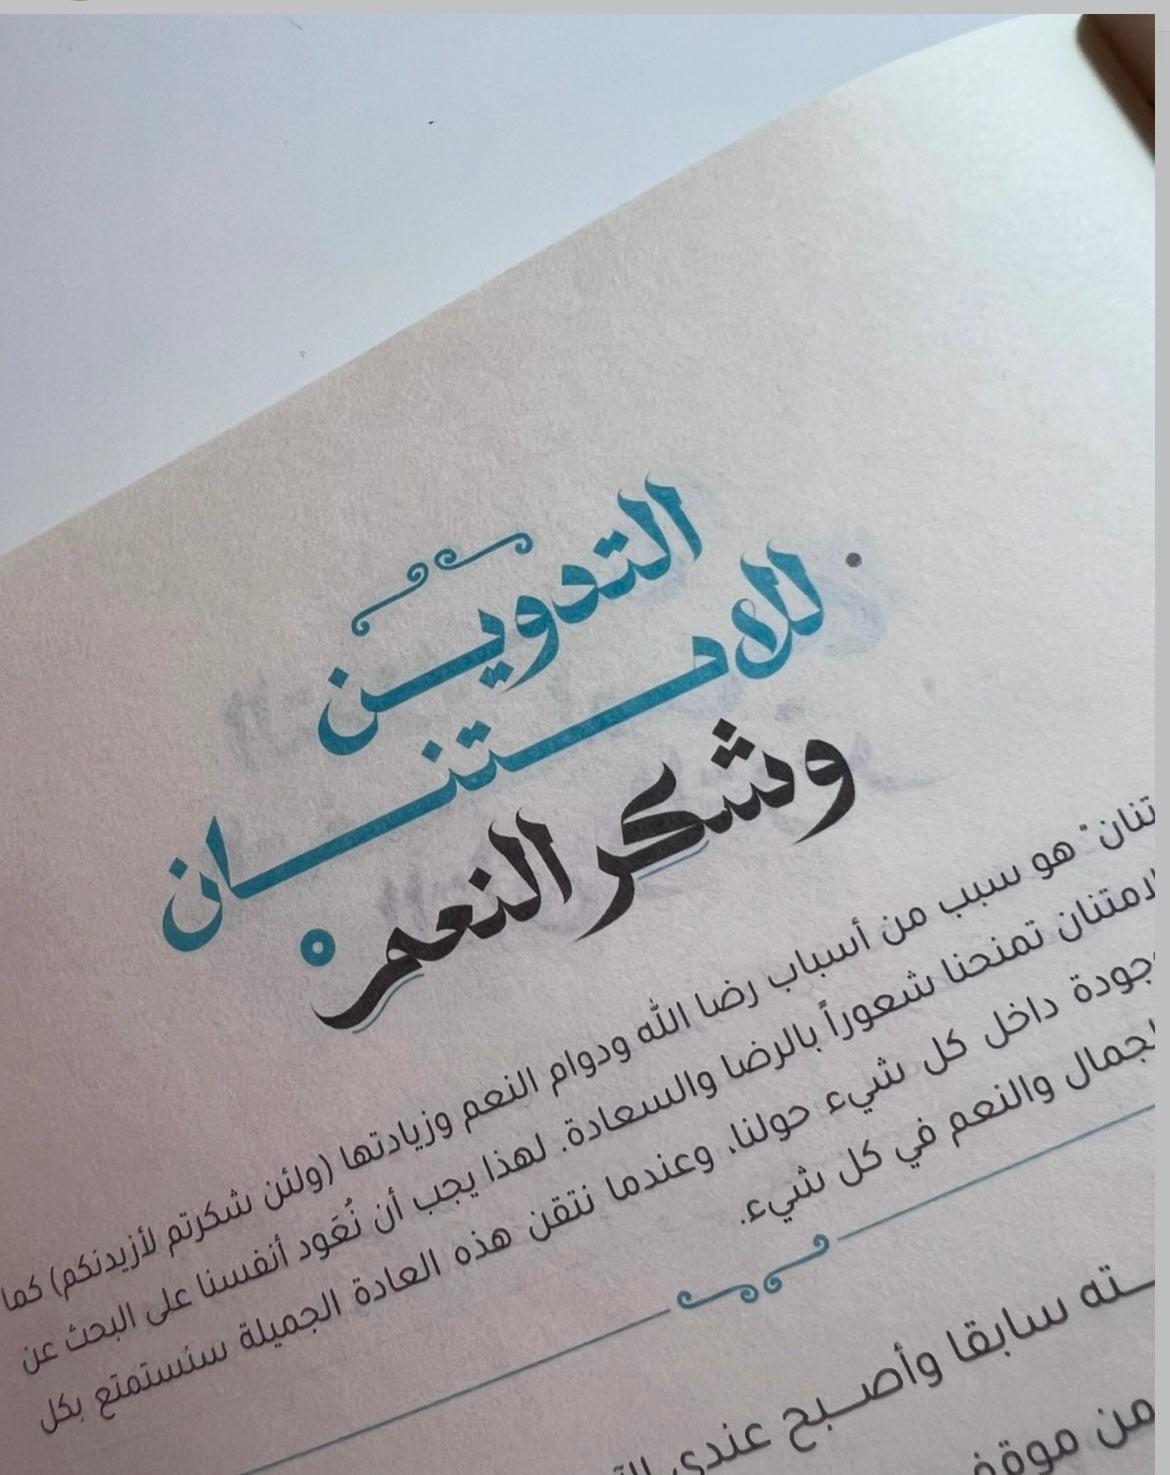 التدوين
للامتنان
وشكر النعم
هو سبب من أسباب رضا الله ودوام النعم وزيادتها (ولئن شكرتم لأزيدنكم) كما
تمنحنا شعوراً بالرضا والسعادة. لهذا يجب أن نُعَود أنفسنا على البحث عن
داخل كل شيء حولنا، وعندما نتقن هذه العادة الجميلة سنستمتع بكل
والنعم في كل شيء.
سابقا وأصبح عندي
من